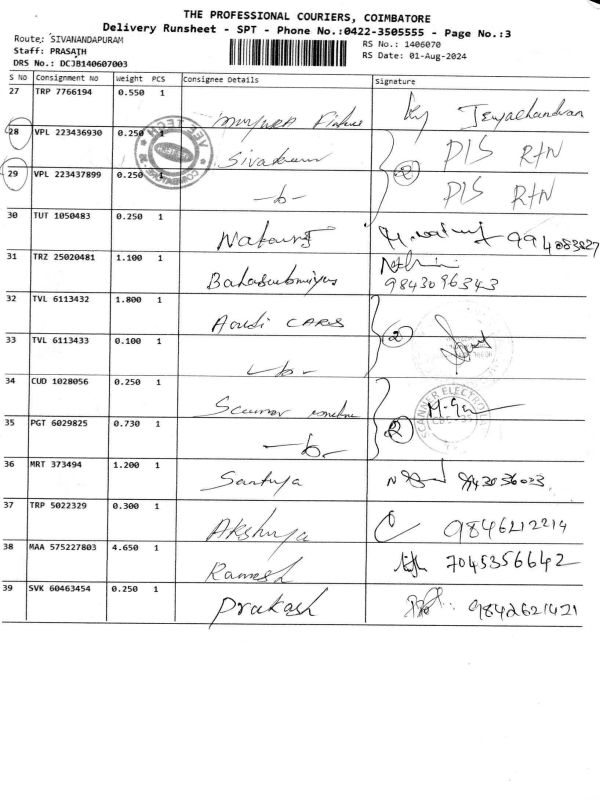 THE PROFESSIONAL COURIERS, COIMBATORE
Delivery Runsheet - SPT - Phone No.:0422-3505555 - Page No.:3
Route: SIVANANDAPURAM
Staff: PRASATH
DRS No.: DCJB140607003
RS No.: 1406070
RS Date: 01-Aug-2024
S NO Consignment No Weight PCS Consignee Details Signature
27 TRP 7766194 0.550 1 Jeyachandran
28 VPL 223436930 0.250 1 Sivakum PIS RTN
29 VPL 223437899 0.250 1 -do- 2 PIS RTN
VEE TECH
COIMBATORE
30 TUT 1050483 0.250 1 994083827
31 TRZ 25020481 1.100 1 9843096343
32 TVL 6113432 1.800 1 Aoudi CARS
33 TVL 6113433 0.100 1 -do- 2
34 CUD 1028056 0.250 1
SCANNER ELECTRO
35 PGT 6029825 0.730 1 -do- 2
36 MRT 373494 1.200 1 Santhya
37 TRP 5022329 0.300 1 Akshaya 9846212214
38 MAA 575227803 4.650 1 Ramesh 7045356642
39 SVK 60463454 0.250 1 Prakash 9842621421